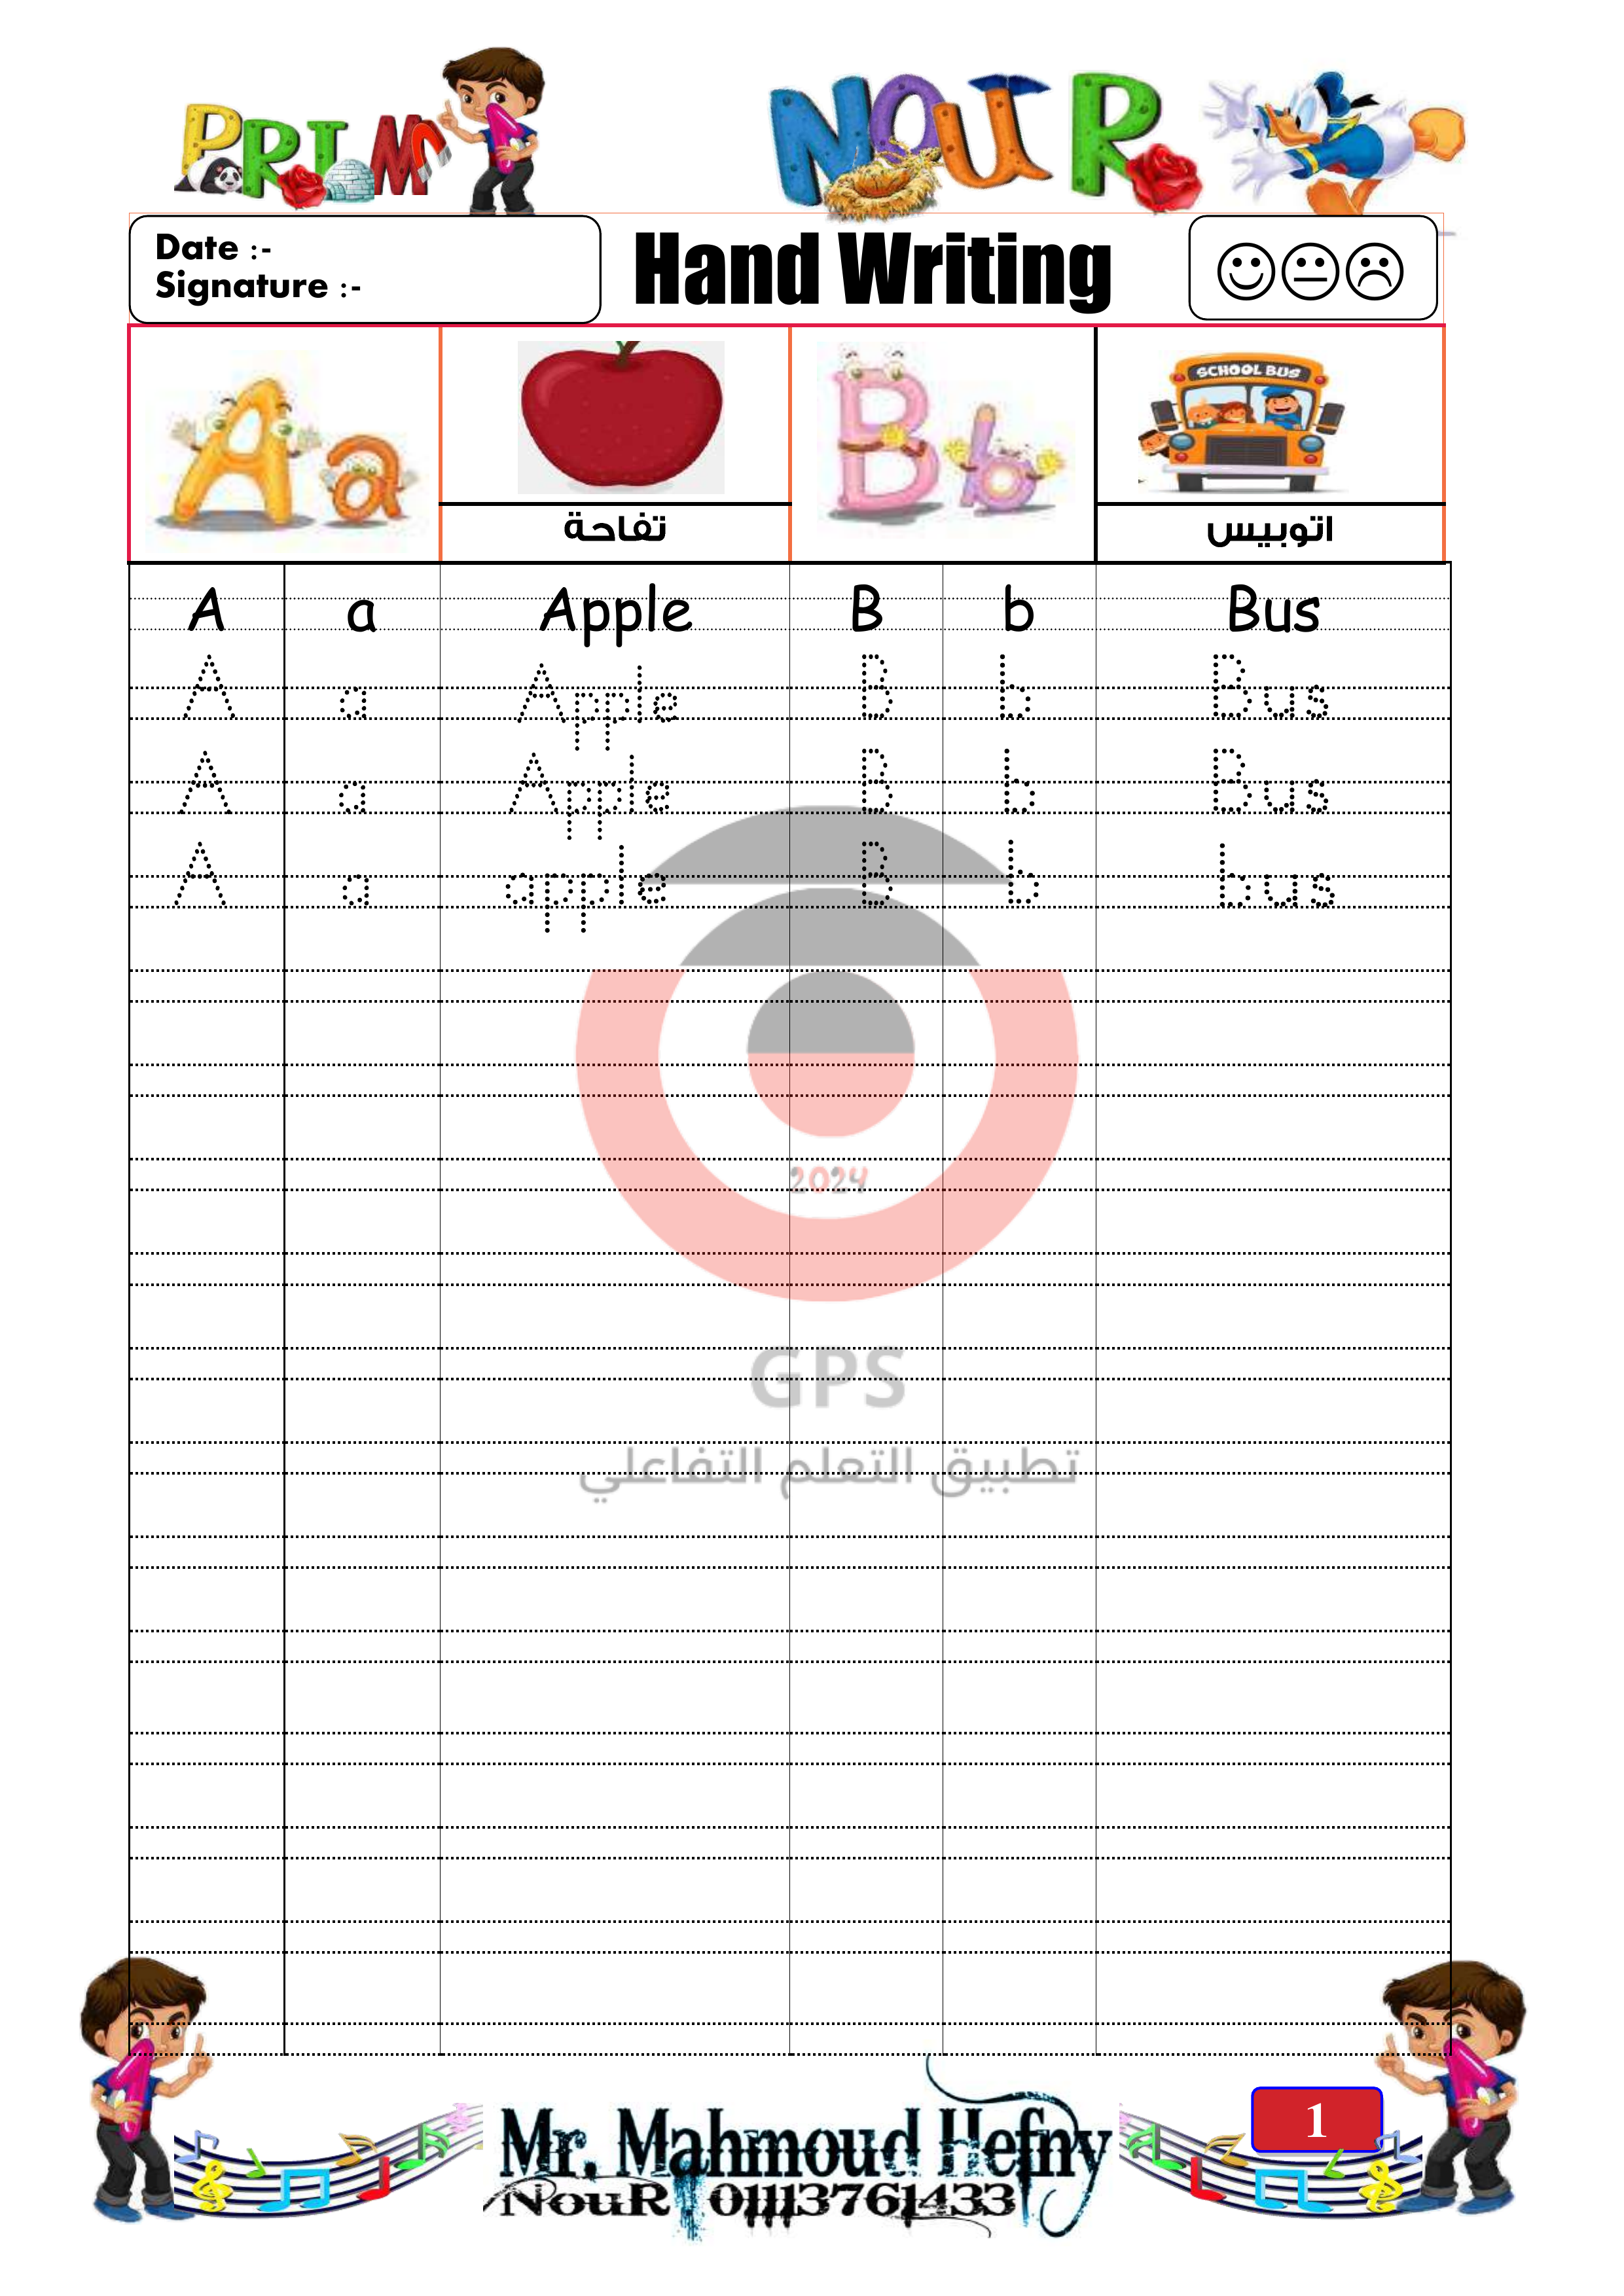 PRIM 1
NOUR
Date :-
Signature :-
Hand Writing
A a
B b
SCHOOL BUS
تفاحة
اتوبيس
A a Apple B b Bus
A a Apple B b Bus
A a Apple B b Bus
A a apple B b bus
2024
GPS
تطبيق التعلم التفاعلي
1
Mr. Mahmoud Hefny
NouR : 01113761433